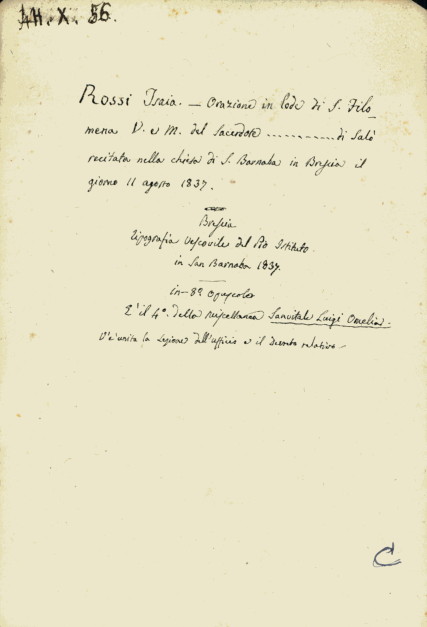 4H. X. 56.
Rossi Isaia. — Orazione in lode di S. Filo-
mena V. e M. del Sacerdote ............ di Salò
recitata nella chiesa di S. Barnaba in Brescia il
giorno 11 agosto 1837.
Brescia
Tipografia Vescovile del Pio Istituto
in San Barnaba 1837.
in-8º Opuscolo
E' il 4º. della Miscellanea Sanvitale Luigi Omelia.
V'è unita la Lezione dell'ufficio e il Decreto relativo.
C